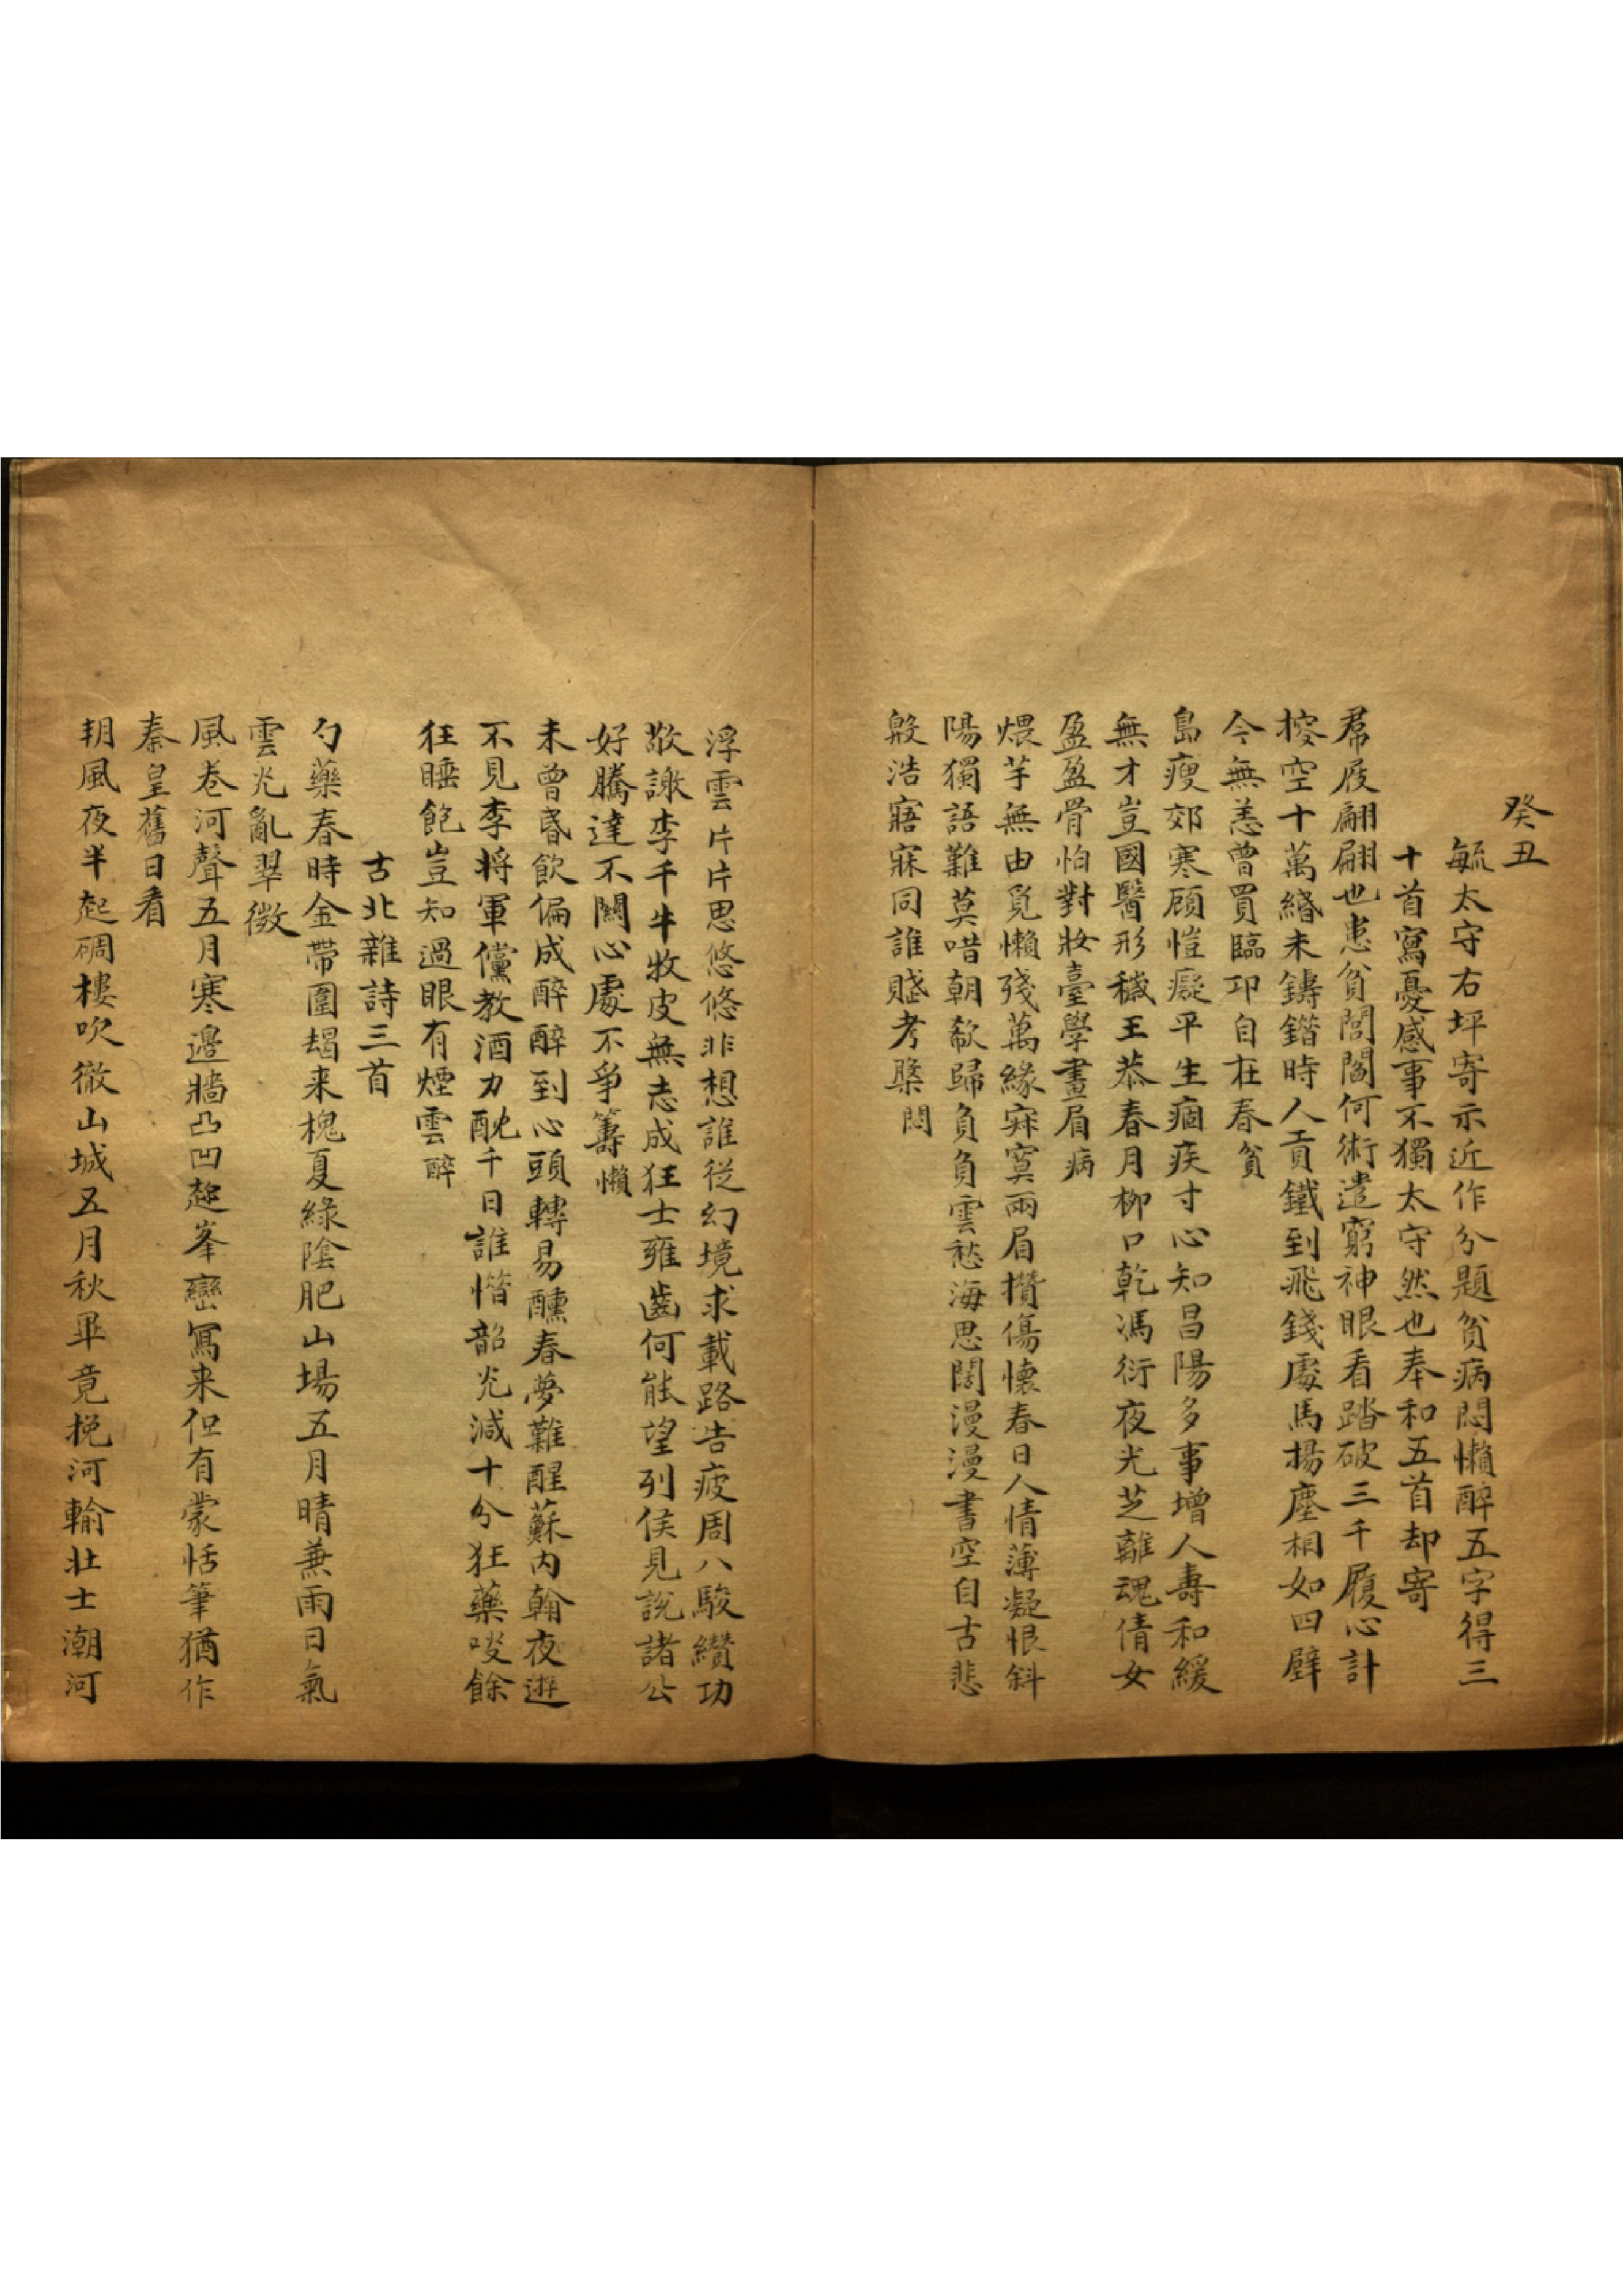 癸丑
毓太守右坪寄示近作分題貧病悶懶醉五字得三
十首寫憂感事不獨太守然也奉和五首却寄
帬屐翩翩也患貧閭閻何術遣窮神眼看踏破三千履心計
搾空十萬緡未鑄鍇時人貢鐵到飛錢處馬揚塵相如四壁
今無恙曾買臨卭自在春貧
島瘦郊寒顧愷癡平生痼疾寸心知昌陽多事增人壽和緩
無才豈國醫形穢王恭春月柳口乾馮衍夜光芝離魂倩女
盈盈骨怕對妝臺學畫眉病
煨芋無由覓懶殘萬緣寂寞兩眉攢傷懷春日人情薄凝恨斜
陽獨語難莫唶朝欷歸負負雲愁海思闊漫漫書空自古悲
殷浩寤寐同誰賦考槃悶
浮雲片片思悠悠非想誰從幻境求載路告疲周八駿纘功
敬謝李千牛牧皮無志成狂士雍齒何能望列侯見說諸公
好騰達不關心處不爭籌懶
未曾昬飲偏成醉醉到心頭轉易醺春夢難醒蘇內翰夜遊
不見李將軍儻教酒力酖千日誰惜韶光減十分狂藥㕞餘
狂睡飽豈知過眼有煙雲醉
古北雜詩三首
勺藥春時金帶圍朅来槐夏綠陰肥山場五月晴兼雨日氣
雲光亂翠微
風卷河聲五月寒邊牆凸凹趂峯巒寫来但有蒙恬筆猶作
秦皇舊日看
朔風夜半起碉樓吹徹山城五月秋畢竟挽河輸壯士潮河